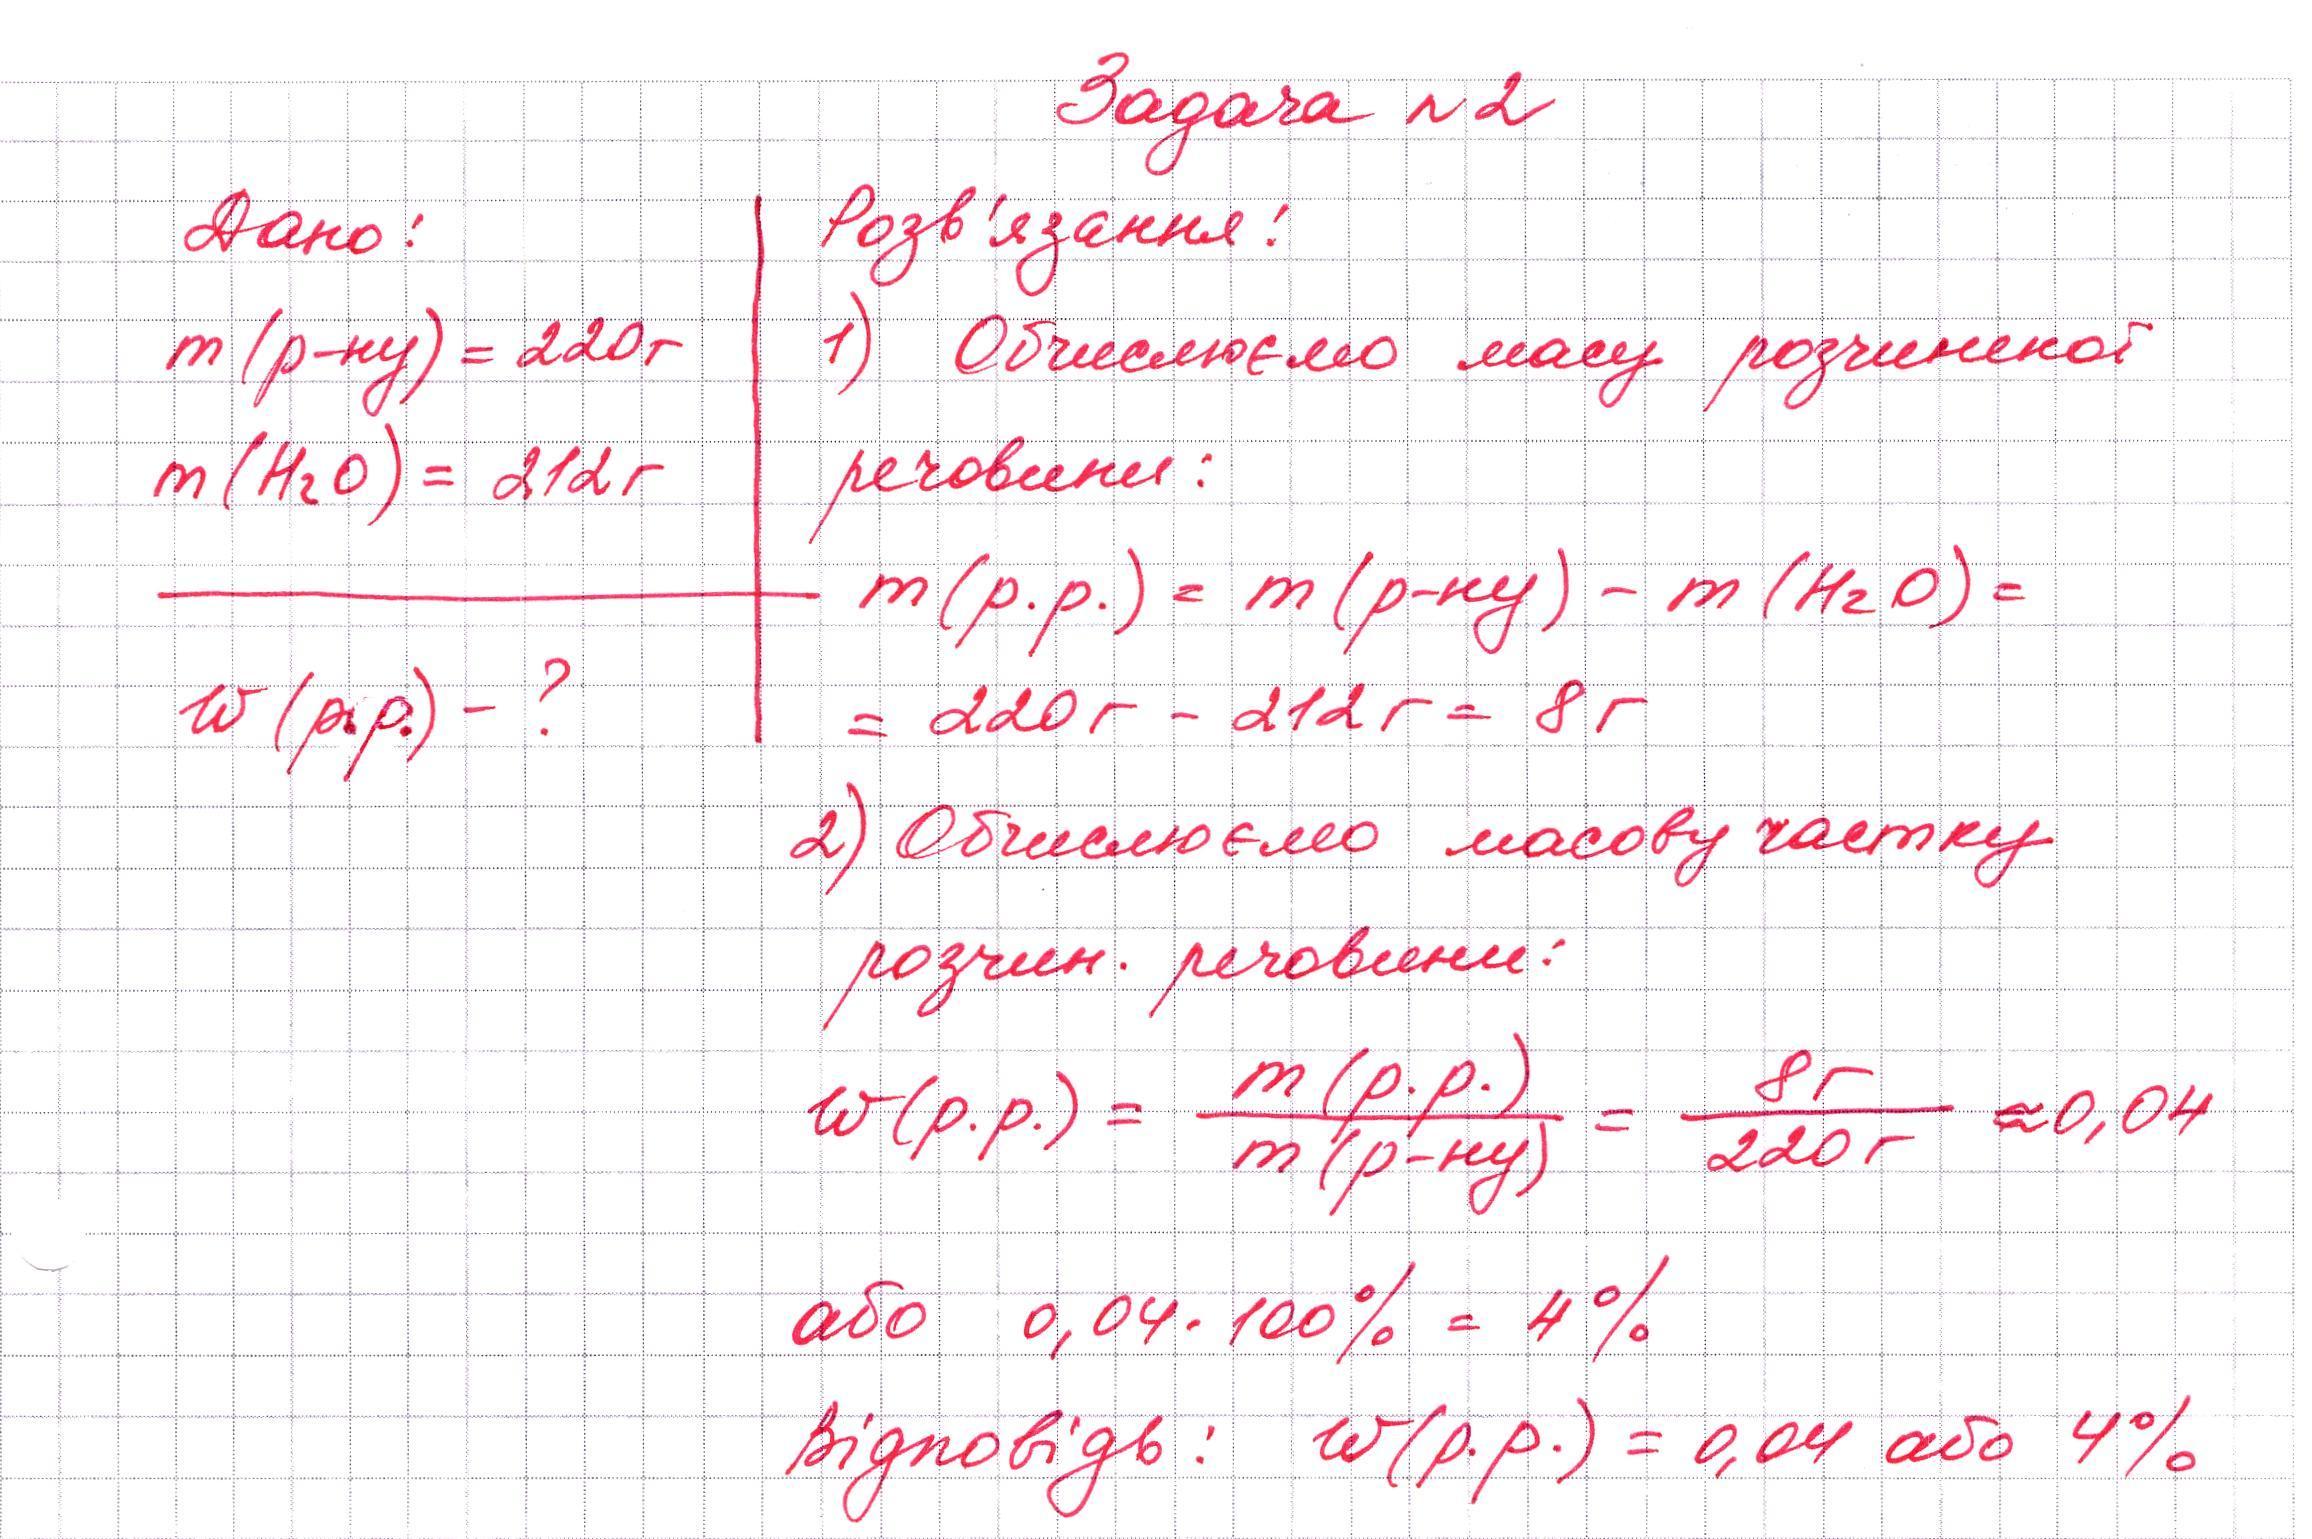 Задача №2
Дано:
m(р-ну) = 220г
m(H₂O) = 212г
w(р.р.) - ?
Розв'язання:
1) Обчислюємо масу розчиненої
речовини:
m(р.р.) = m(р-ну) - m(H₂O) =
= 220г - 212г = 8г
2) Обчислюємо масову частку
розчин. речовини:
w(р.р.) = m(р.р.) / m(р-ну) = 8г / 220г ≈ 0,04
або 0,04 · 100% = 4%
Відповідь: w(р.р.) = 0,04 або 4%